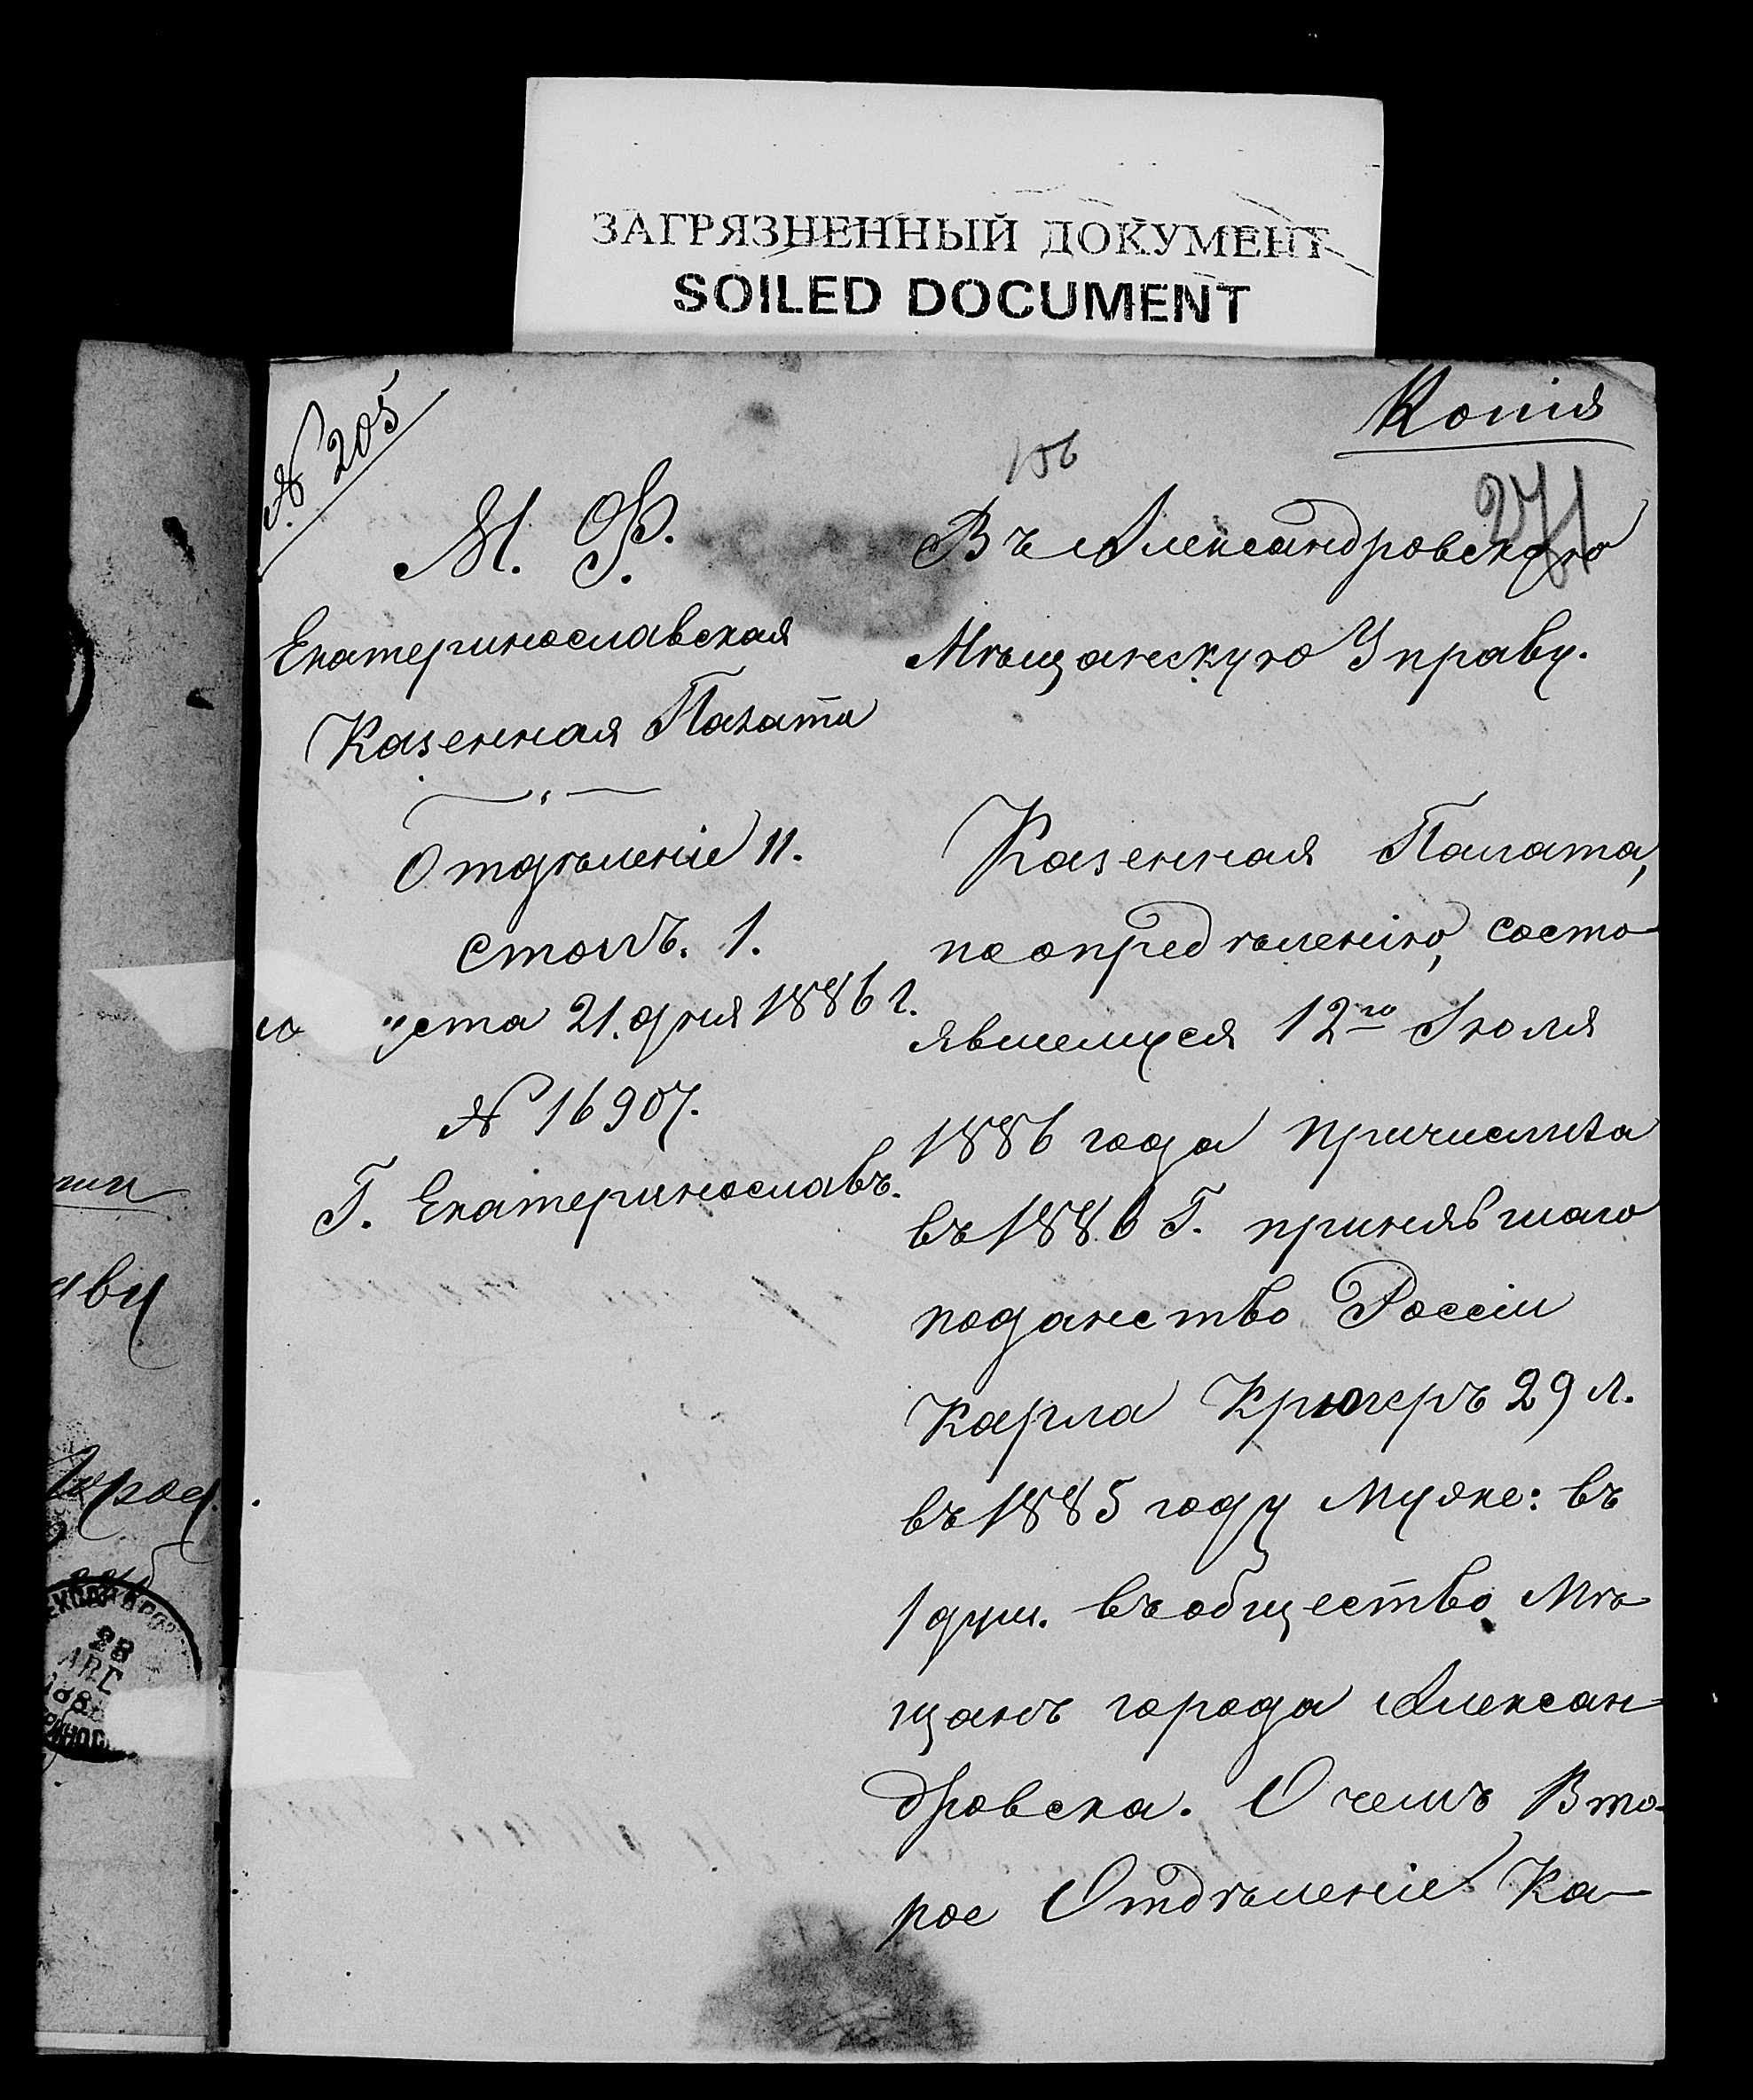 ЗАГРЯЗНЕННЫЙ ДОКУМЕНТ
SOILED DOCUMENT
№ 205
Копія
156
271
М. Ф.
Екатеринославская
Казенная Палата
Отдѣленіе II.
столъ. 1.
уста 21. дня 1886 г.
№ 16907.
Г. Екатеринославъ.
Въ Александровскую
Мѣщанскую Управу.
Казенная Палата,
по опредѣленію, состо
явшемуся 12го Іюля
1886 года причислила
въ 1886 г. принявшаго
поданство Россіи
Карла Крюгеръ 29 л.
въ 1885 году Муже: въ
1 душ. въ общество Мѣ
щанъ города Алексан
дровска. О чемъ Вто-
рое Отдѣленіе Ка-
аву
Город.
28
АВГ
188